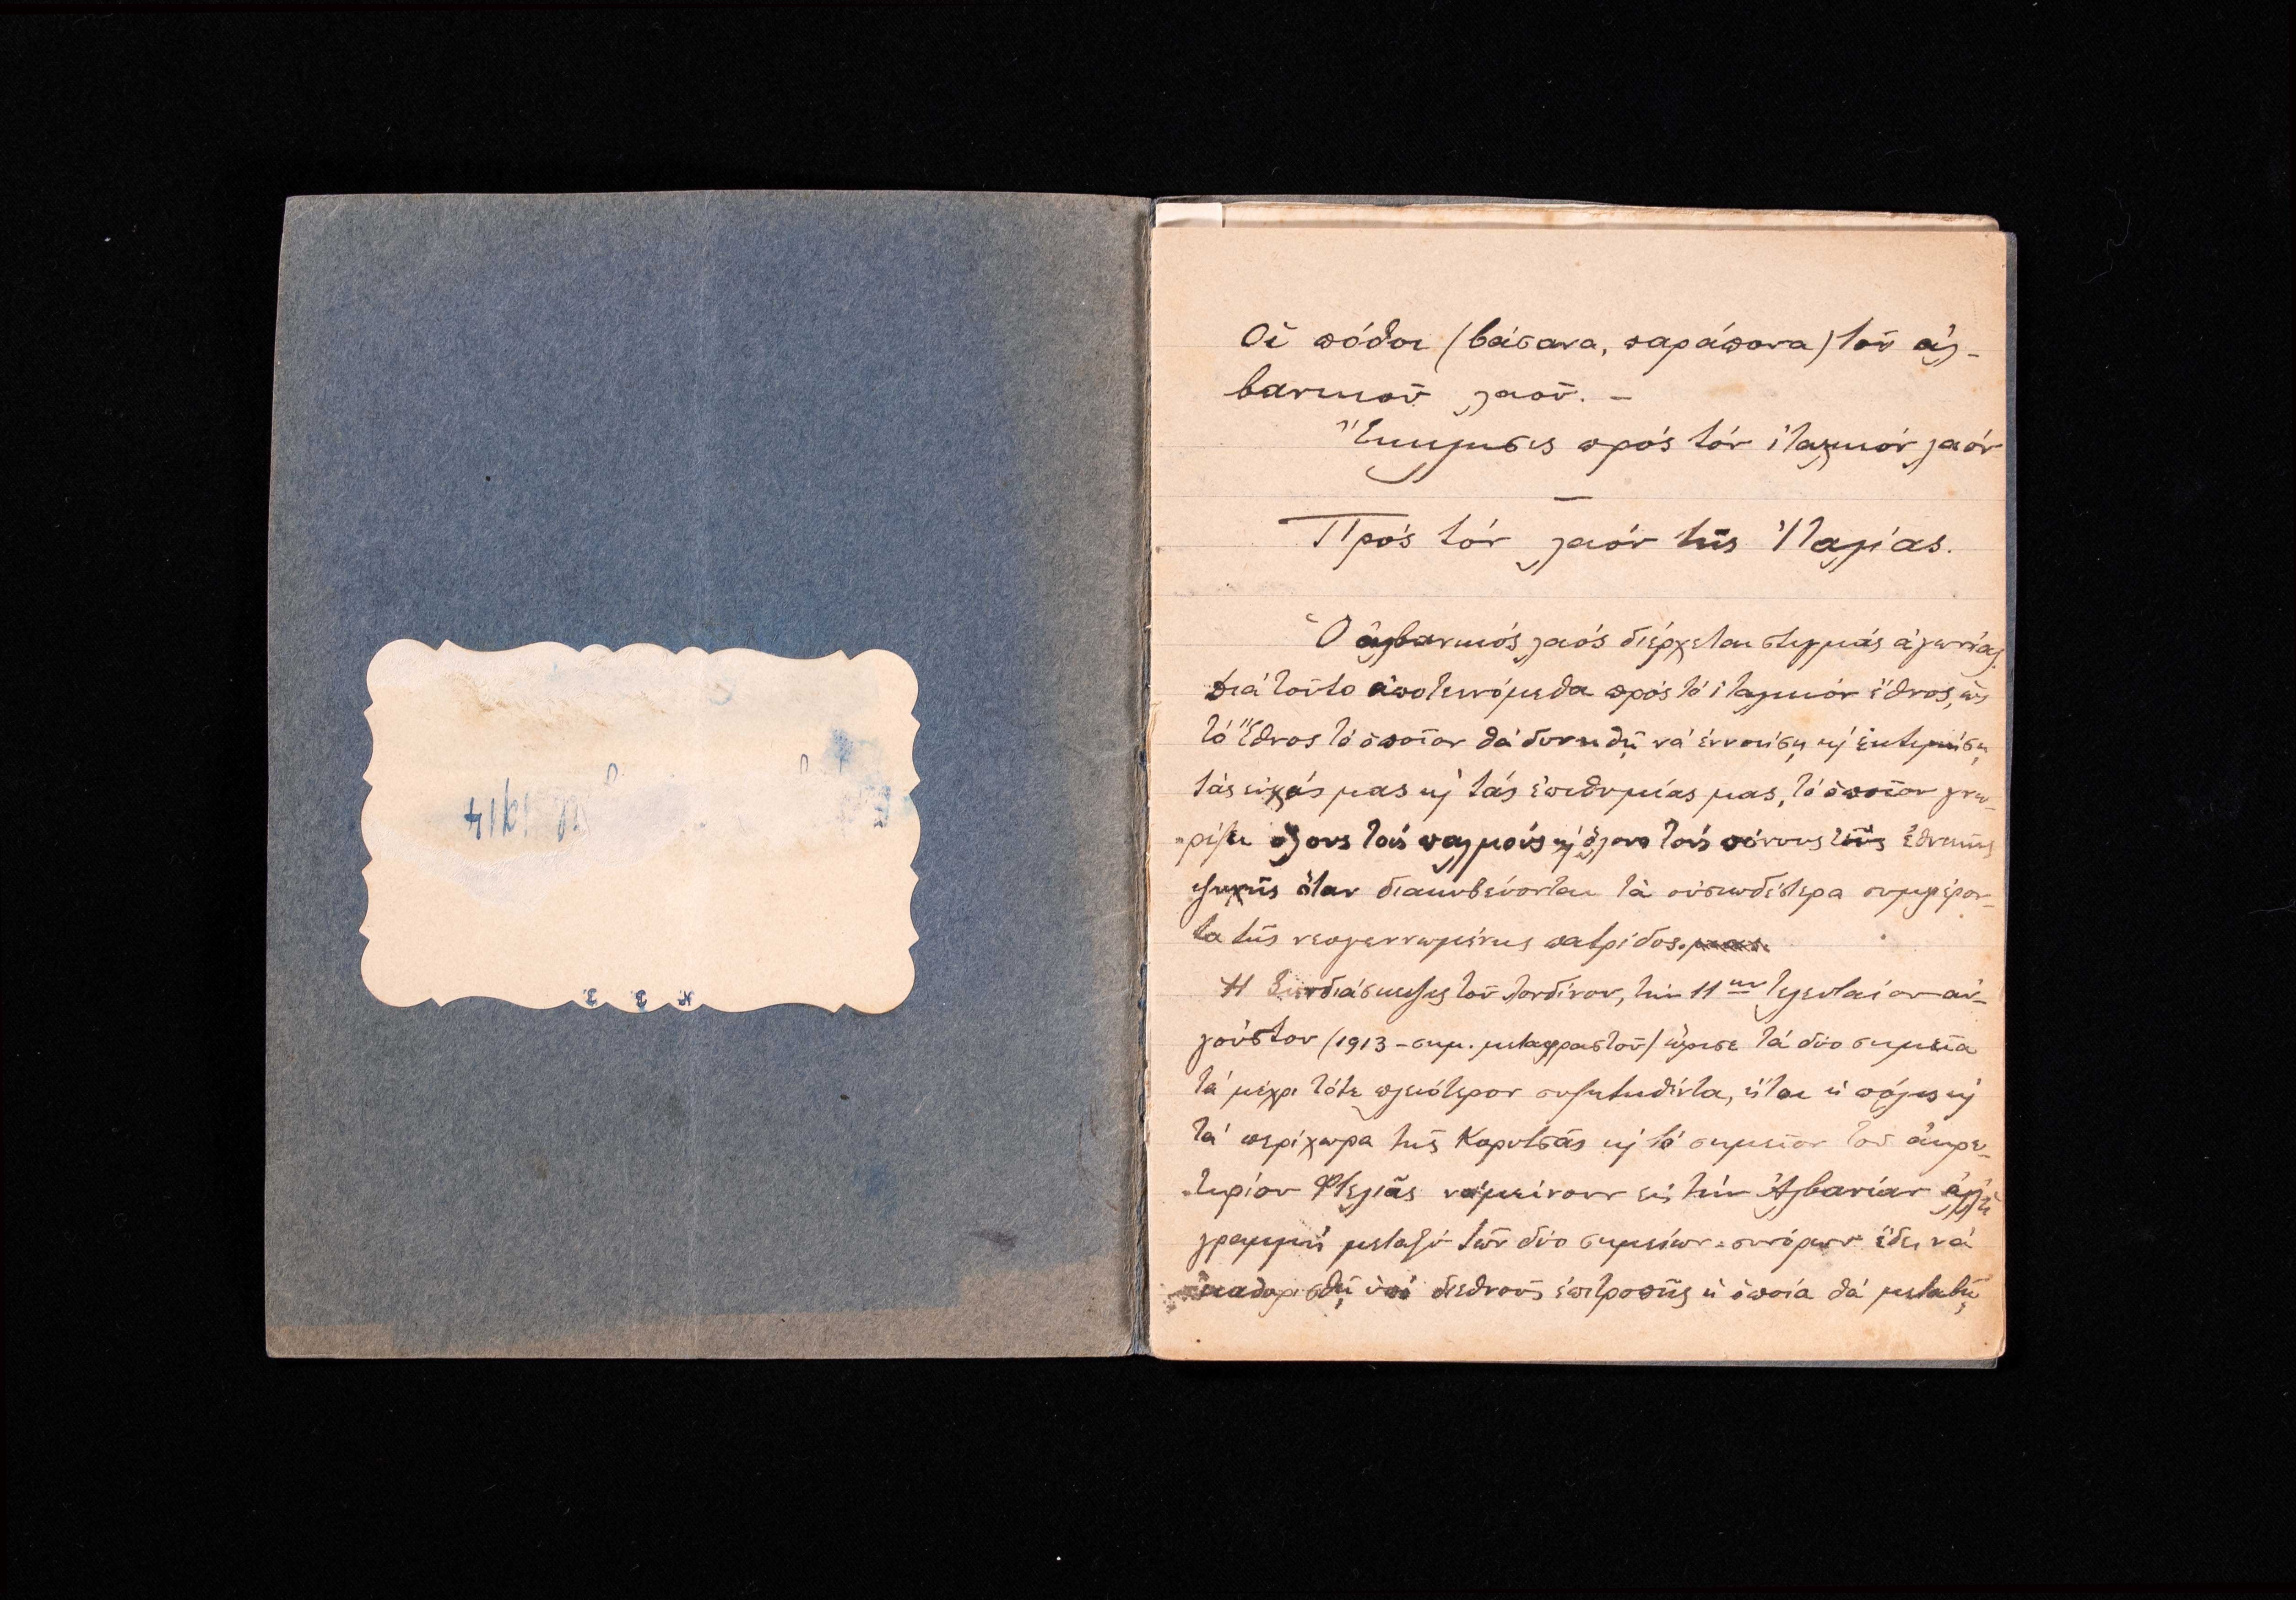 Οἱ πόθοι (βάσανα, παράπονα) τοῦ ἀλ-
βανικοῦ λαοῦ. –
Ἔκκλησις πρός τόν ἰταλικόν λαόν
—
Πρός τόν λαόν τῆς Ἰταλίας.
Ὁ ἀλβανικός λαός διέρχεται στιγμάς ἀγωνίας.
Διά τοῦτο ἀποτεινόμεθα πρός τό ἰταλικόν ἔθνος, ὡς
τό Ἔθνος τό ὁποῖον θά δυνηθῇ νά ἐννοήσῃ κ' ἐκτιμήσῃ
τάς εὐχάς μας κ' τάς ἐπιθυμίας μας, τό ὁποῖον γνω-
ρίζει ὅλους τούς παλμούς κ' ὅλους τούς πόνους τῆς ἐθνικῆς
ψυχῆς ὅταν διακυβεύονται τά οὐσιωδέστερα συμφέρον-
τα τῆς νεογεννωμένης πατρίδος. μας.
Ἡ Συνδιάσκεψις τοῦ Λονδίνου, τήν 11ην τελευταίου αὐ-
γούστου (1913 – σημ. μεταφραστοῦ) ὥρισε τά δύο σημεῖα
τά μέχρι τότε πλειότερον συζητηθέντα, ἤτοι ἡ πόλις κ'
τά περίχωρα τῆς Κορυτσᾶς κ' τό σημεῖον τοῦ ἀκρω-
τηρίου Φτελιᾶς νά μείνουν εἰς τήν Ἀλβανίαν ἀλλ' ἡ
γραμμή μεταξύ τῶν δύο σημείων - συνόρων ἔδει νά
καθορισθῇ ὑπό διεθνοῦς ἐπιτροπῆς ἡ ὁποία θά μεταβῇ